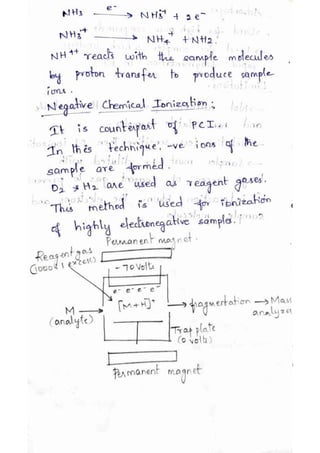 NH3 e⁻ → NH3⁺ + 2e⁻
NH3⁺ → NH4⁺ + NH2·
NH⁺⁺ reacts with the sample molecules
by proton transfer to produce sample
ions.
Negative Chemical Ionization:
It is counterpart of PCI.
In this technique, -ve ions of the
sample are formed.
O2 & H2 are used as reagent gases.
This method is used for ionization
of highly electronegative samples.
Permanent magnet.
Reagent gas
(1000x1 excess)
-70 Volts
e⁻ e⁻ e⁻ e⁻
[M+H]⁺
M
(analyte)
→ fragmentation → Mass
analyzer
Trap plate
(0 volts)
Permanent magnet